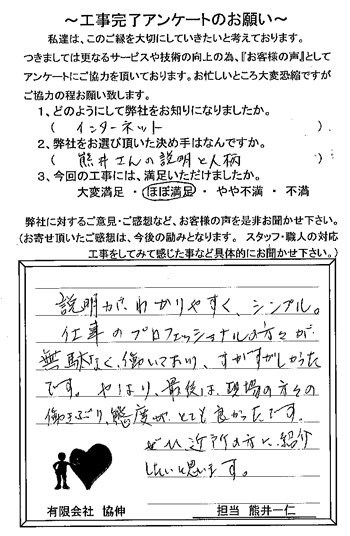 ～工事完了アンケートのお願い～
私達は、このご縁を大切にしていきたいと考えております。
つきましては更なるサービスや技術の向上の為、『お客様の声』として
アンケートにご協力を頂いております。お忙しいところ大変恐縮ですが
ご協力の程お願い致します。
1、どのようにして弊社をお知りになりましたか。
( インターネット )
2、弊社をお選び頂いた決め手はなんですか。
( 熊井さんの説明と人柄 )
3、今回の工事には、満足いただけましたか。
大変満足 ・ ほぼ満足 ・ やや不満 ・ 不満
弊社に対するご意見・ご感想など、お客様の声を是非お聞かせ下さい。
(お寄せ頂いたご感想は、今後の励みとなります。 スタッフ・職人の対応
工事をしてみて感じた事など具体的にお聞かせ下さい。)
説明がわかりやすく、シンプル。
仕事のプロフェッショナルの方々が
無駄なく、働いており、すがすがしかった
です。やはり、最後は、現場の方々の
働きぶり、態度が、とても良かったです。
ぜひ近所の方に紹介
したいと思います。
有限会社 協伸
担当 熊井一仁